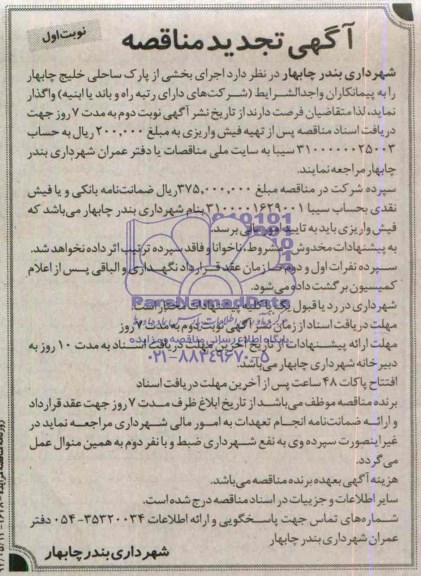 نوبت اول
آگهی تجدید مناقصه
شهرداری بندر چابهار در نظر دارد اجرای بخشی از پارک ساحلی خلیج چابهار
را به پیمانکاران واجدالشرایط (شرکت‌های دارای رتبه راه و باند یا ابنیه) واگذار
نماید، لذا متقاضیان فرصت دارند از تاریخ نشر آگهی نوبت دوم به مدت ۷ روز جهت
دریافت اسناد مناقصه پس از تهیه فیش واریزی به مبلغ ۲۰۰,۰۰۰ ریال به حساب
۳۱۰۰۰۰۰۰۲۵۰۰۳ سیبا به سایت ملی مناقصات یا دفتر عمران شهرداری بندر
چابهار مراجعه نمایند.
سپرده شرکت در مناقصه مبلغ ۳۷۵,۰۰۰,۰۰۰ ریال ضمانت‌نامه بانکی و یا فیش
نقدی بحساب سیبا ۳۱۰۰۰۰۱۶۲۹۰۰۱ بنام شهرداری بندر چابهار می‌باشد که
فیش واریزی باید به تایید امور مالی برسد.
به پیشنهادات مخدوش، مشروط، ناخوانا و فاقد سپرده ترتیب اثر داده نخواهد شد.
سپرده نفرات اول و دوم تا زمان عقد قرارداد نگهداری و الباقی پس از اعلام
کمیسیون برگشت داده می‌شود.
شهرداری در رد یا قبول یک یا کلیه پیشنهادات مختار است
مهلت دریافت اسناد از زمان نشر آگهی نوبت دوم به مدت ۷ روز
مهلت ارائه پیشنهادات از تاریخ آخرین مهلت دریافت اسناد به مدت ۱۰ روز به
دبیرخانه شهرداری چابهار می‌باشد.
افتتاح پاکات ۴۸ ساعت پس از آخرین مهلت دریافت اسناد
برنده مناقصه موظف می‌باشد از تاریخ ابلاغ ظرف مدت ۷ روز جهت عقد قرارداد
و ارائه ضمانت‌نامه انجام تعهدات به امور مالی شهرداری مراجعه نماید در
غیر اینصورت سپرده وی به نفع شهرداری ضبط و با نفر دوم به همین منوال عمل
می‌گردد.
هزینه آگهی بعهده برنده مناقصه می‌باشد.
سایر اطلاعات و جزییات در اسناد مناقصه درج شده است.
شماره‌های تماس جهت پاسخگویی و ارائه اطلاعات ۳۵۳۲۰۰۳۴-۰۵۴ دفتر
عمران شهرداری بندر چابهار
شهرداری بندر چابهار
ParsNamadData
پایگاه اطلاع رسانی مناقصه و مزایده
۰۲۱-۸۸۳۴۹۶۷۰-۵